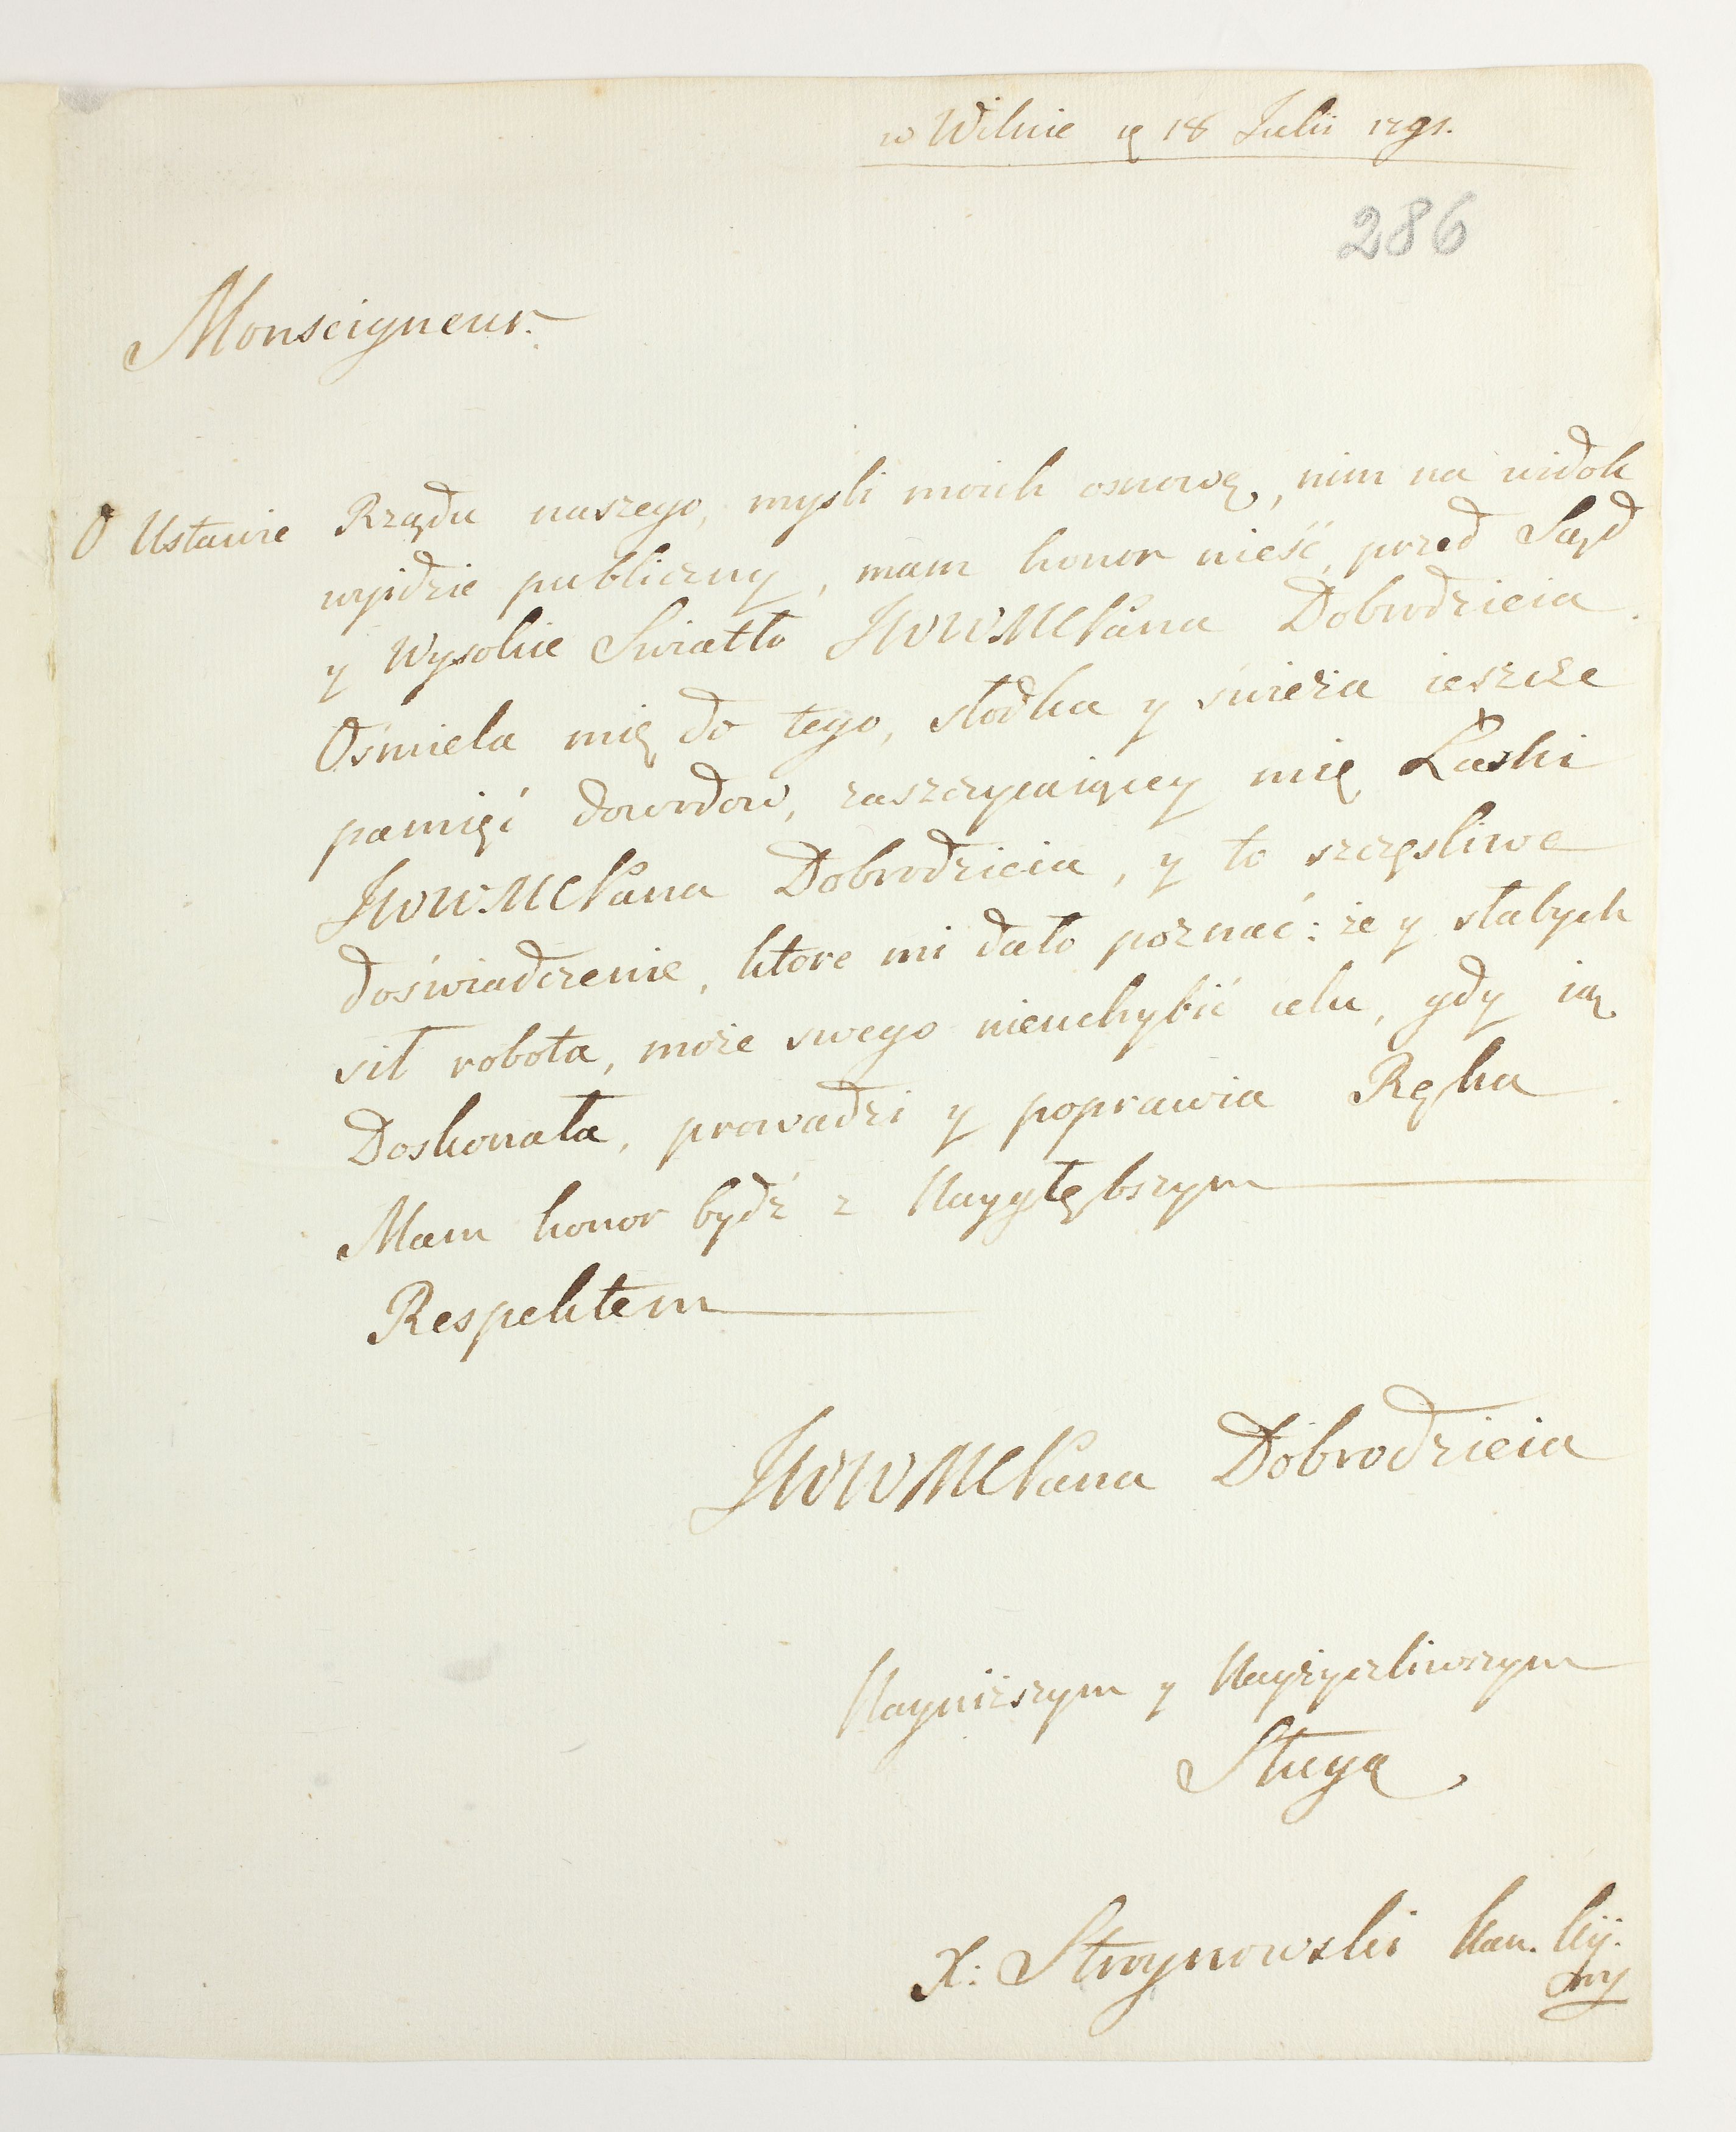 w Wilnie ą 18 Julii 1791.
286
Monseigneur.
O Ustawie Rządu naszego, mysli moich osnowę, nim na widok
wyidzie publiczny, mam honor nieść, przed Sąd
y Wysokie Swiatło JWWMCPana Dobrodzieia.
Ośmiela mię do tego, słodka y świeża ieszcze
pamięć dowodow, zaszczycaiącey mię Łaski
JWWMCPana Dobrodzieia, y to szczęsliwe
doświadczenie, ktore mi dało poznać: że y słabych
sił robota, może swego nieuchybić celu, gdy ią
Doskonała, prowadzi y poprawia Ręka.
Mam honor bydź z Naygłębszym
Respektem
JWWMCPana Dobrodzieia
Nayniższym y Nayżyczliwszym
Sługą
X: Stroynowski Kan. Kij.